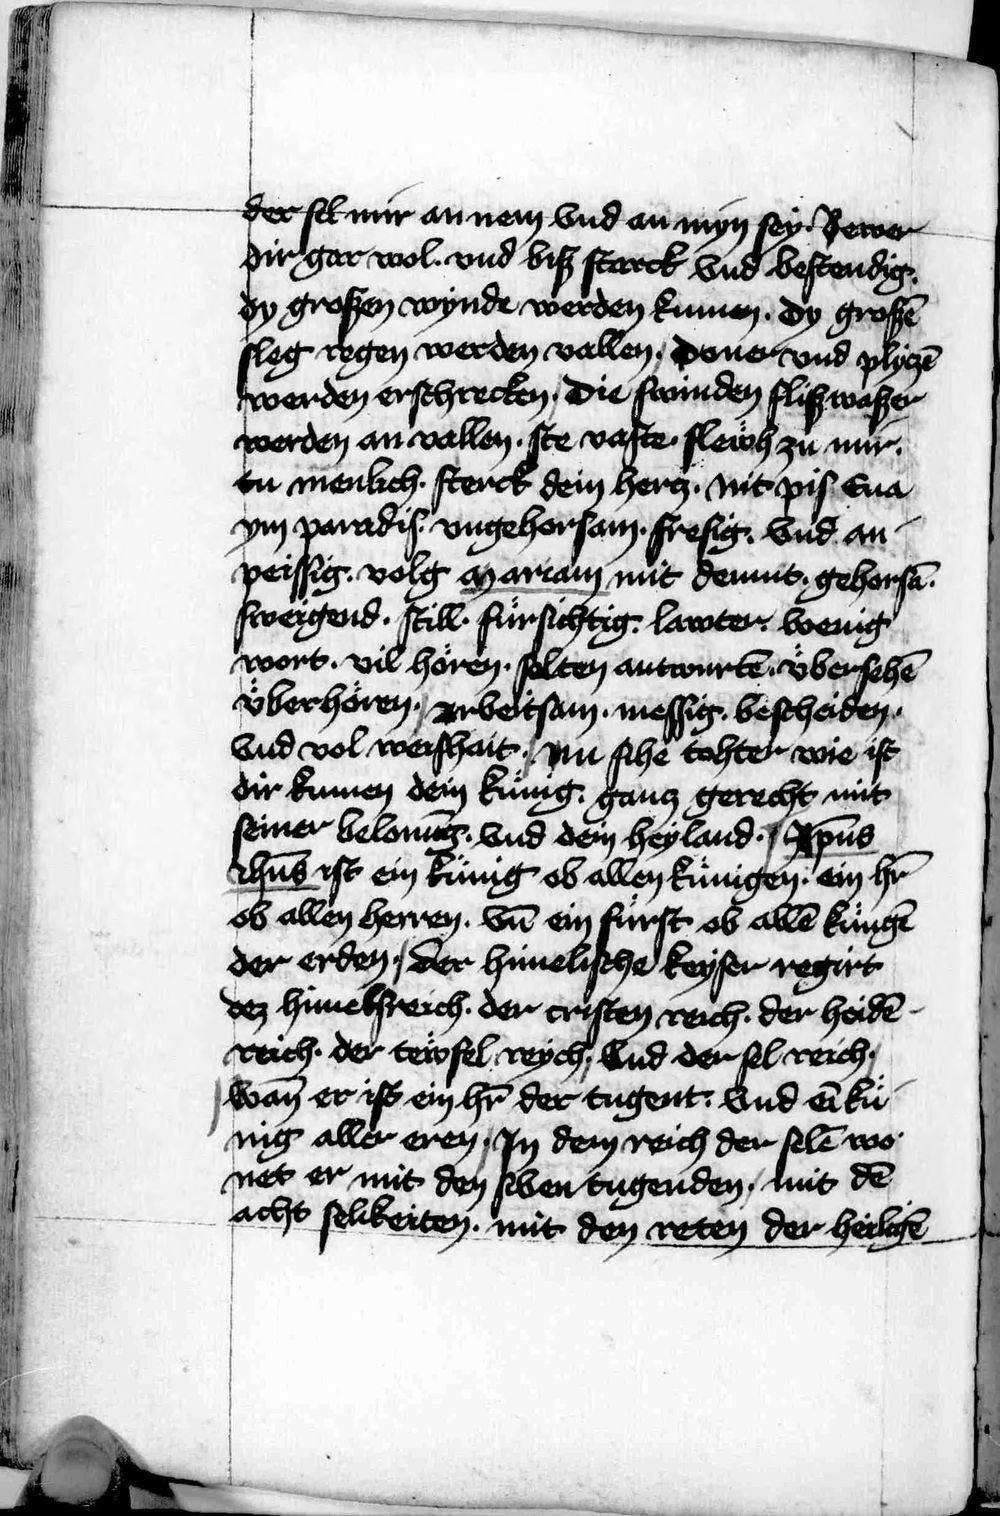 der sel mir an nem vnd an myn sey. Bewer
dir gar wol. vnd biß starck vnd bestendig.
dy großen wynde werden kumen. dy großē
sleg regen werden vallen / Doner vnd plyczē
werden erschrecken / Die swinden flißwaßer
werden an vallen. ste vaste. flewh zu mir.
tu menlich. sterck dein hercz. nit pis Eua
ym paradis. vngehorsam. fresig. vnd an
peissig. volg Mariam mit demut. gehorsā.
sweigend. still. fürsichtig. lawter. wenig
wort. vil hören. selten antwurtē. übersehē
überhören / Arbeitsam. messig. bescheiden.
vnd vol weishait / Nu sihe tohter wie ist
dir kumen dein künig. gancz gerecht mit
seiner belonūg. vnd dein heyland. / Xp̄us
Ihūs ist ein künig ob allen künigen. ein hr̄
ob allen herren. vn̄ ein fürst ob allē küngē
der erden / der himelische keyser regirt
dez himelsreich. der cristen reich. der heidē
reich. der tewfel reych / Vnd der sel reich /
wan̄ er ist ein hr̄ der tugent. vnd eī kü
nig aller eren / In dem reich der selē wo
net er mit den siben tugenden / mit dē
acht selikeiten. mit den reten der heilichē